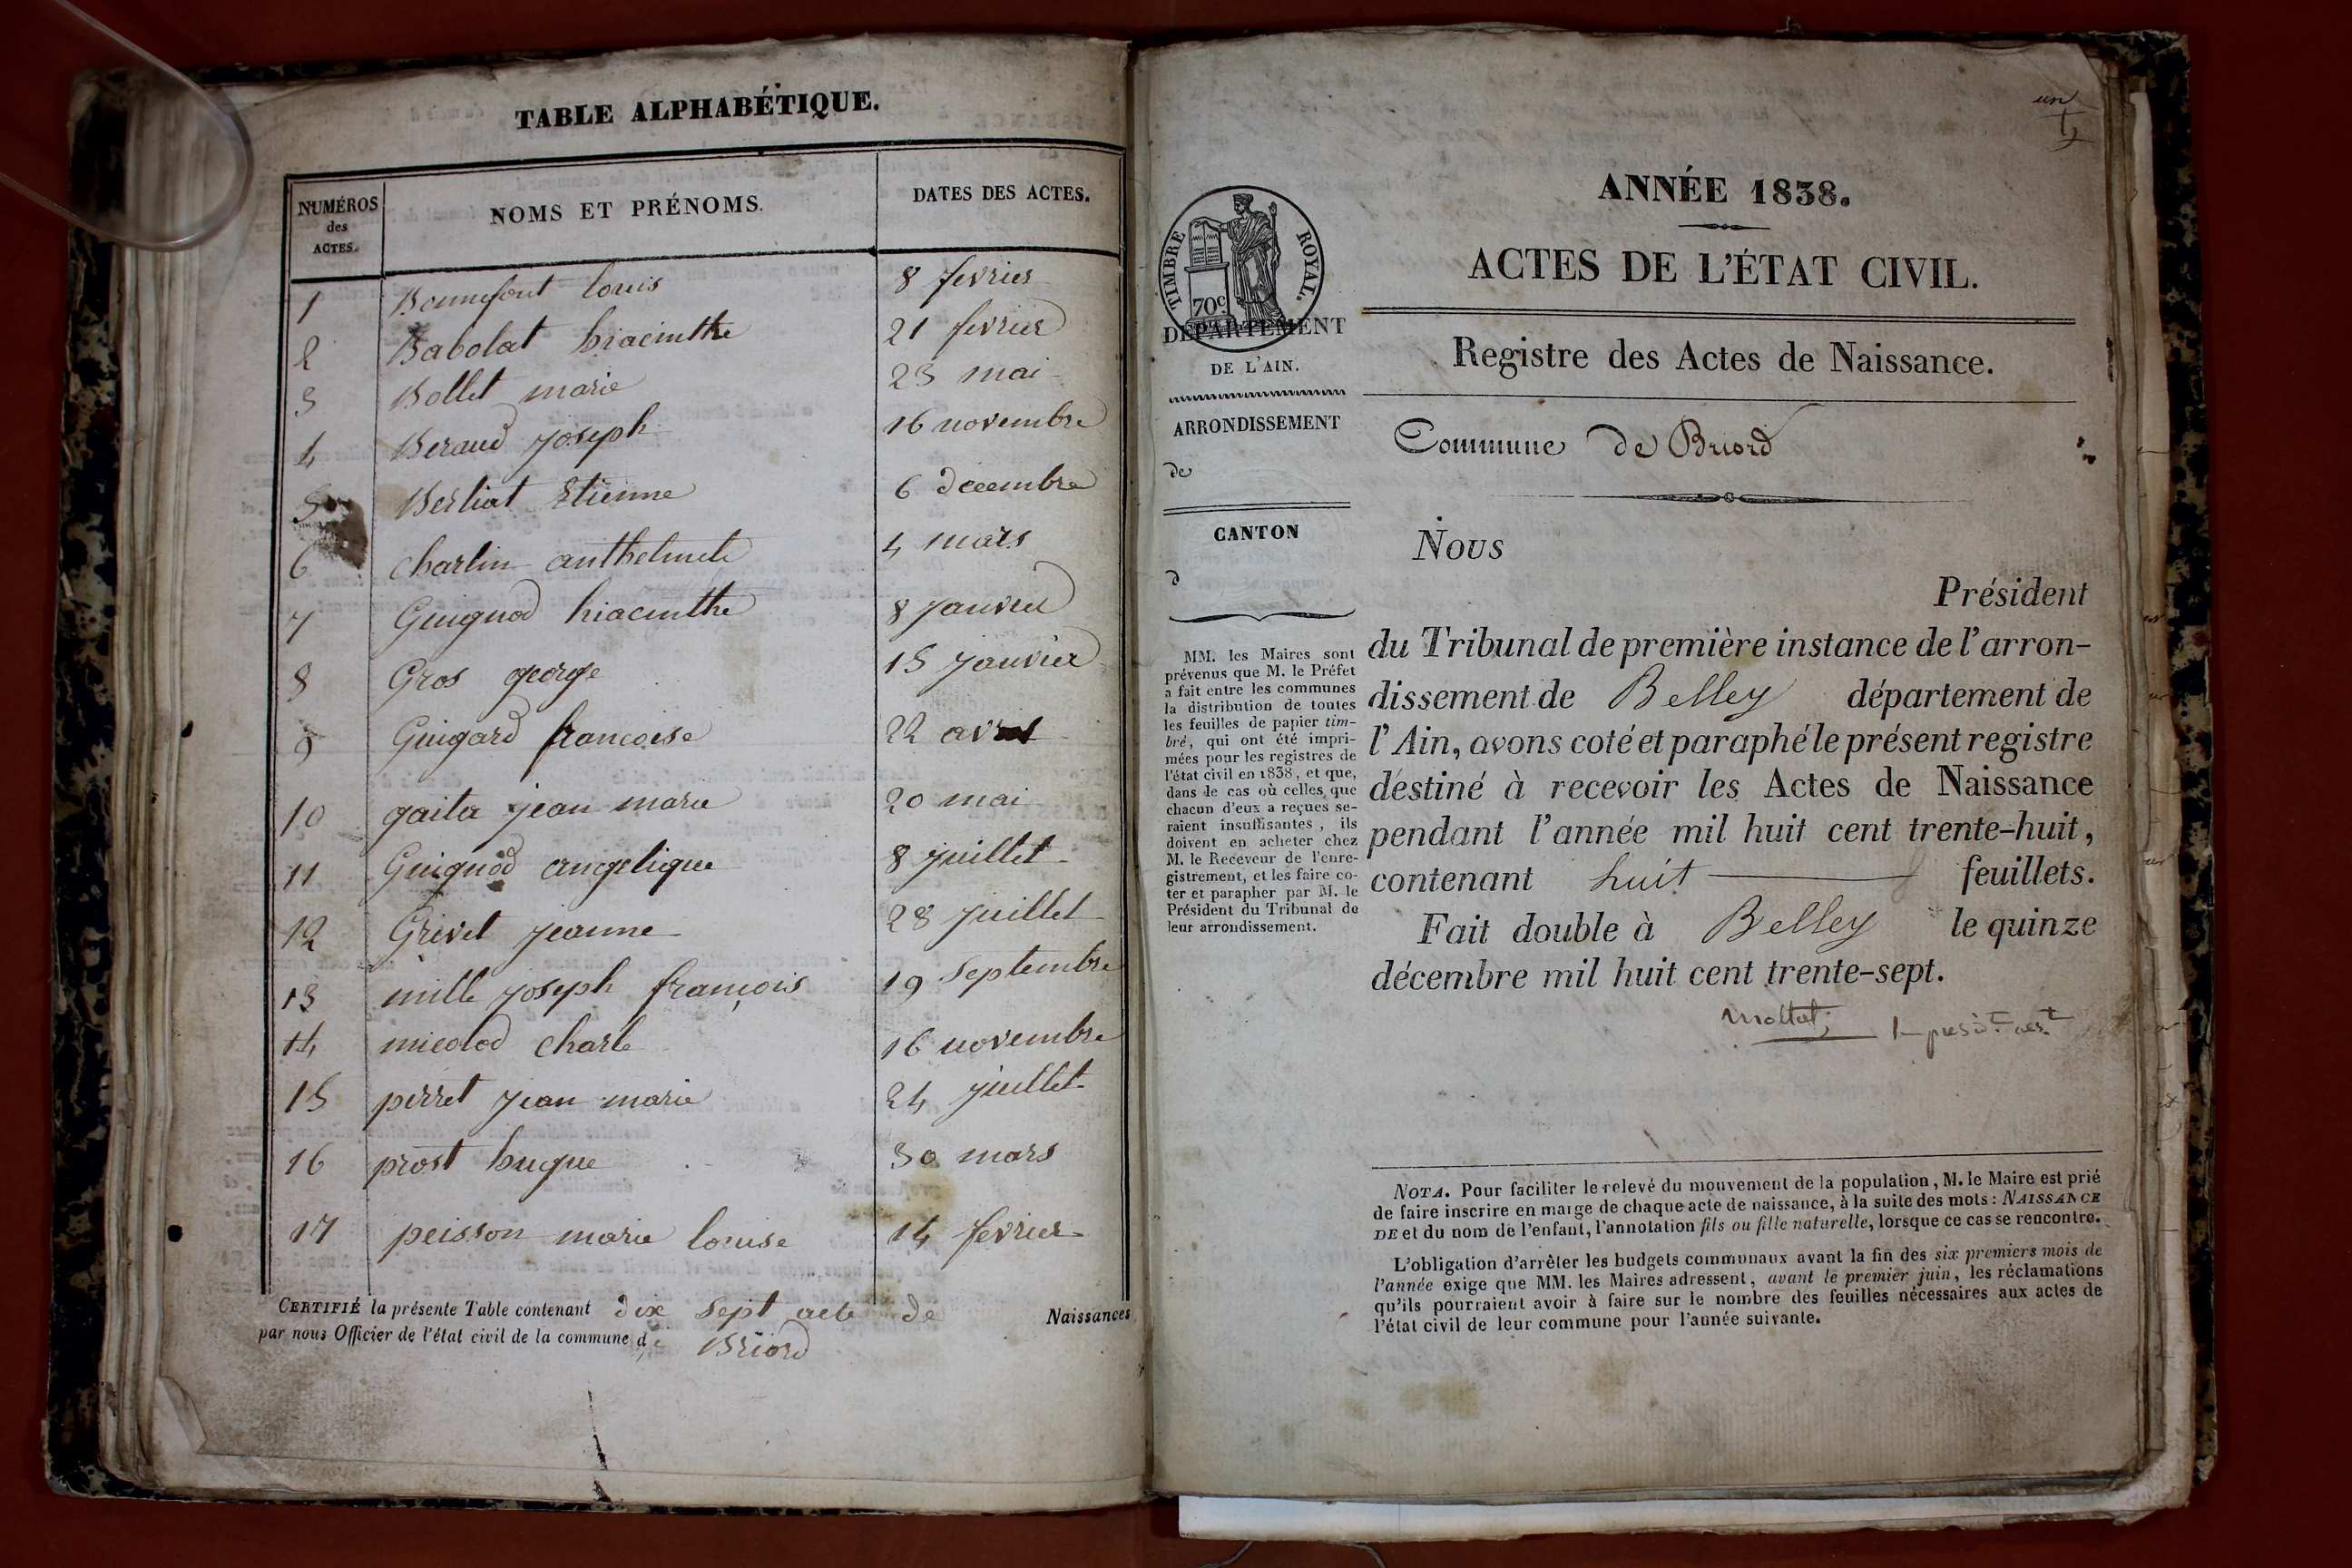 TABLE ALPHABÉTIQUE.
NUMÉROS des ACTES. NOMS ET PRÉNOMS. DATES DES ACTES.
1 Bonnefont louis 8 fevrier
2 Babolat hiacinthe 21 fevrier
3 Bollet marie 23 mai
4 Beraud joseph 16 novembre
5 Berliat Etienne 6 decembre
6 charlin anthelmete 4 mars
7 Guignod hiacinthe 8 janvier
8 Gros george 15 janvier
9 Guigard francoise 22 avril
10 gaita jean marie 20 mai
11 Guignod angelique 8 juillet
12 Grivet jeanne 28 juillet
13 mille joseph françois 19 septembre
14 micolod charle 16 novembre
15 perret jean marie 24 juillet
16 prost hugue 30 mars
17 peisson marie louise 14 fevrier
CERTIFIÉ la présente Table contenant dix sept acte de Naissances
par nous Officier de l'état civil de la commune de Briord
un
ANNÉE 1838.
ACTES DE L'ÉTAT CIVIL.
Registre des Actes de Naissance.
Commune de Briord
TIMBRE ROYAL.
70c.
DÉPARTEMENT
DE L'AIN.
ARRONDISSEMENT
de
CANTON
d
MM. les Maires sont
prévenus que M. le Préfet
a fait entre les communes
la distribution de toutes
les feuilles de papier tim-
bré, qui ont été impri-
mées pour les registres de
l'état civil en 1838, et que,
dans le cas où celles que
chacun d'eux a reçues se-
raient insuffisantes, ils
doivent en acheter chez
M. le Receveur de l'enre-
gistrement, et les faire co-
ter et parapher par M. le
Président du Tribunal de
leur arrondissement.
Nous
Président
du Tribunal de première instance de l'arron-
dissement de Belley département de
l'Ain, avons coté et paraphé le présent registre
destiné à recevoir les Actes de Naissance
pendant l'année mil huit cent trente-huit,
contenant huit feuillets.
Fait double à Belley le quinze
décembre mil huit cent trente-sept.
NOTA. Pour faciliter le relevé du mouvement de la population, M. le Maire est prié
de faire inscrire en marge de chaque acte de naissance, à la suite des mots: NAISSANCE
DE et du nom de l'enfant, l'annotation fils ou fille naturelle, lorsque ce cas se rencontre.
L'obligation d'arrêter les budgets communaux avant la fin des six premiers mois de
l'année exige que MM. les Maires adressent, avant le premier juin, les réclamations
qu'ils pourraient avoir à faire sur le nombre des feuilles nécessaires aux actes de
l'état civil de leur commune pour l'année suivante.